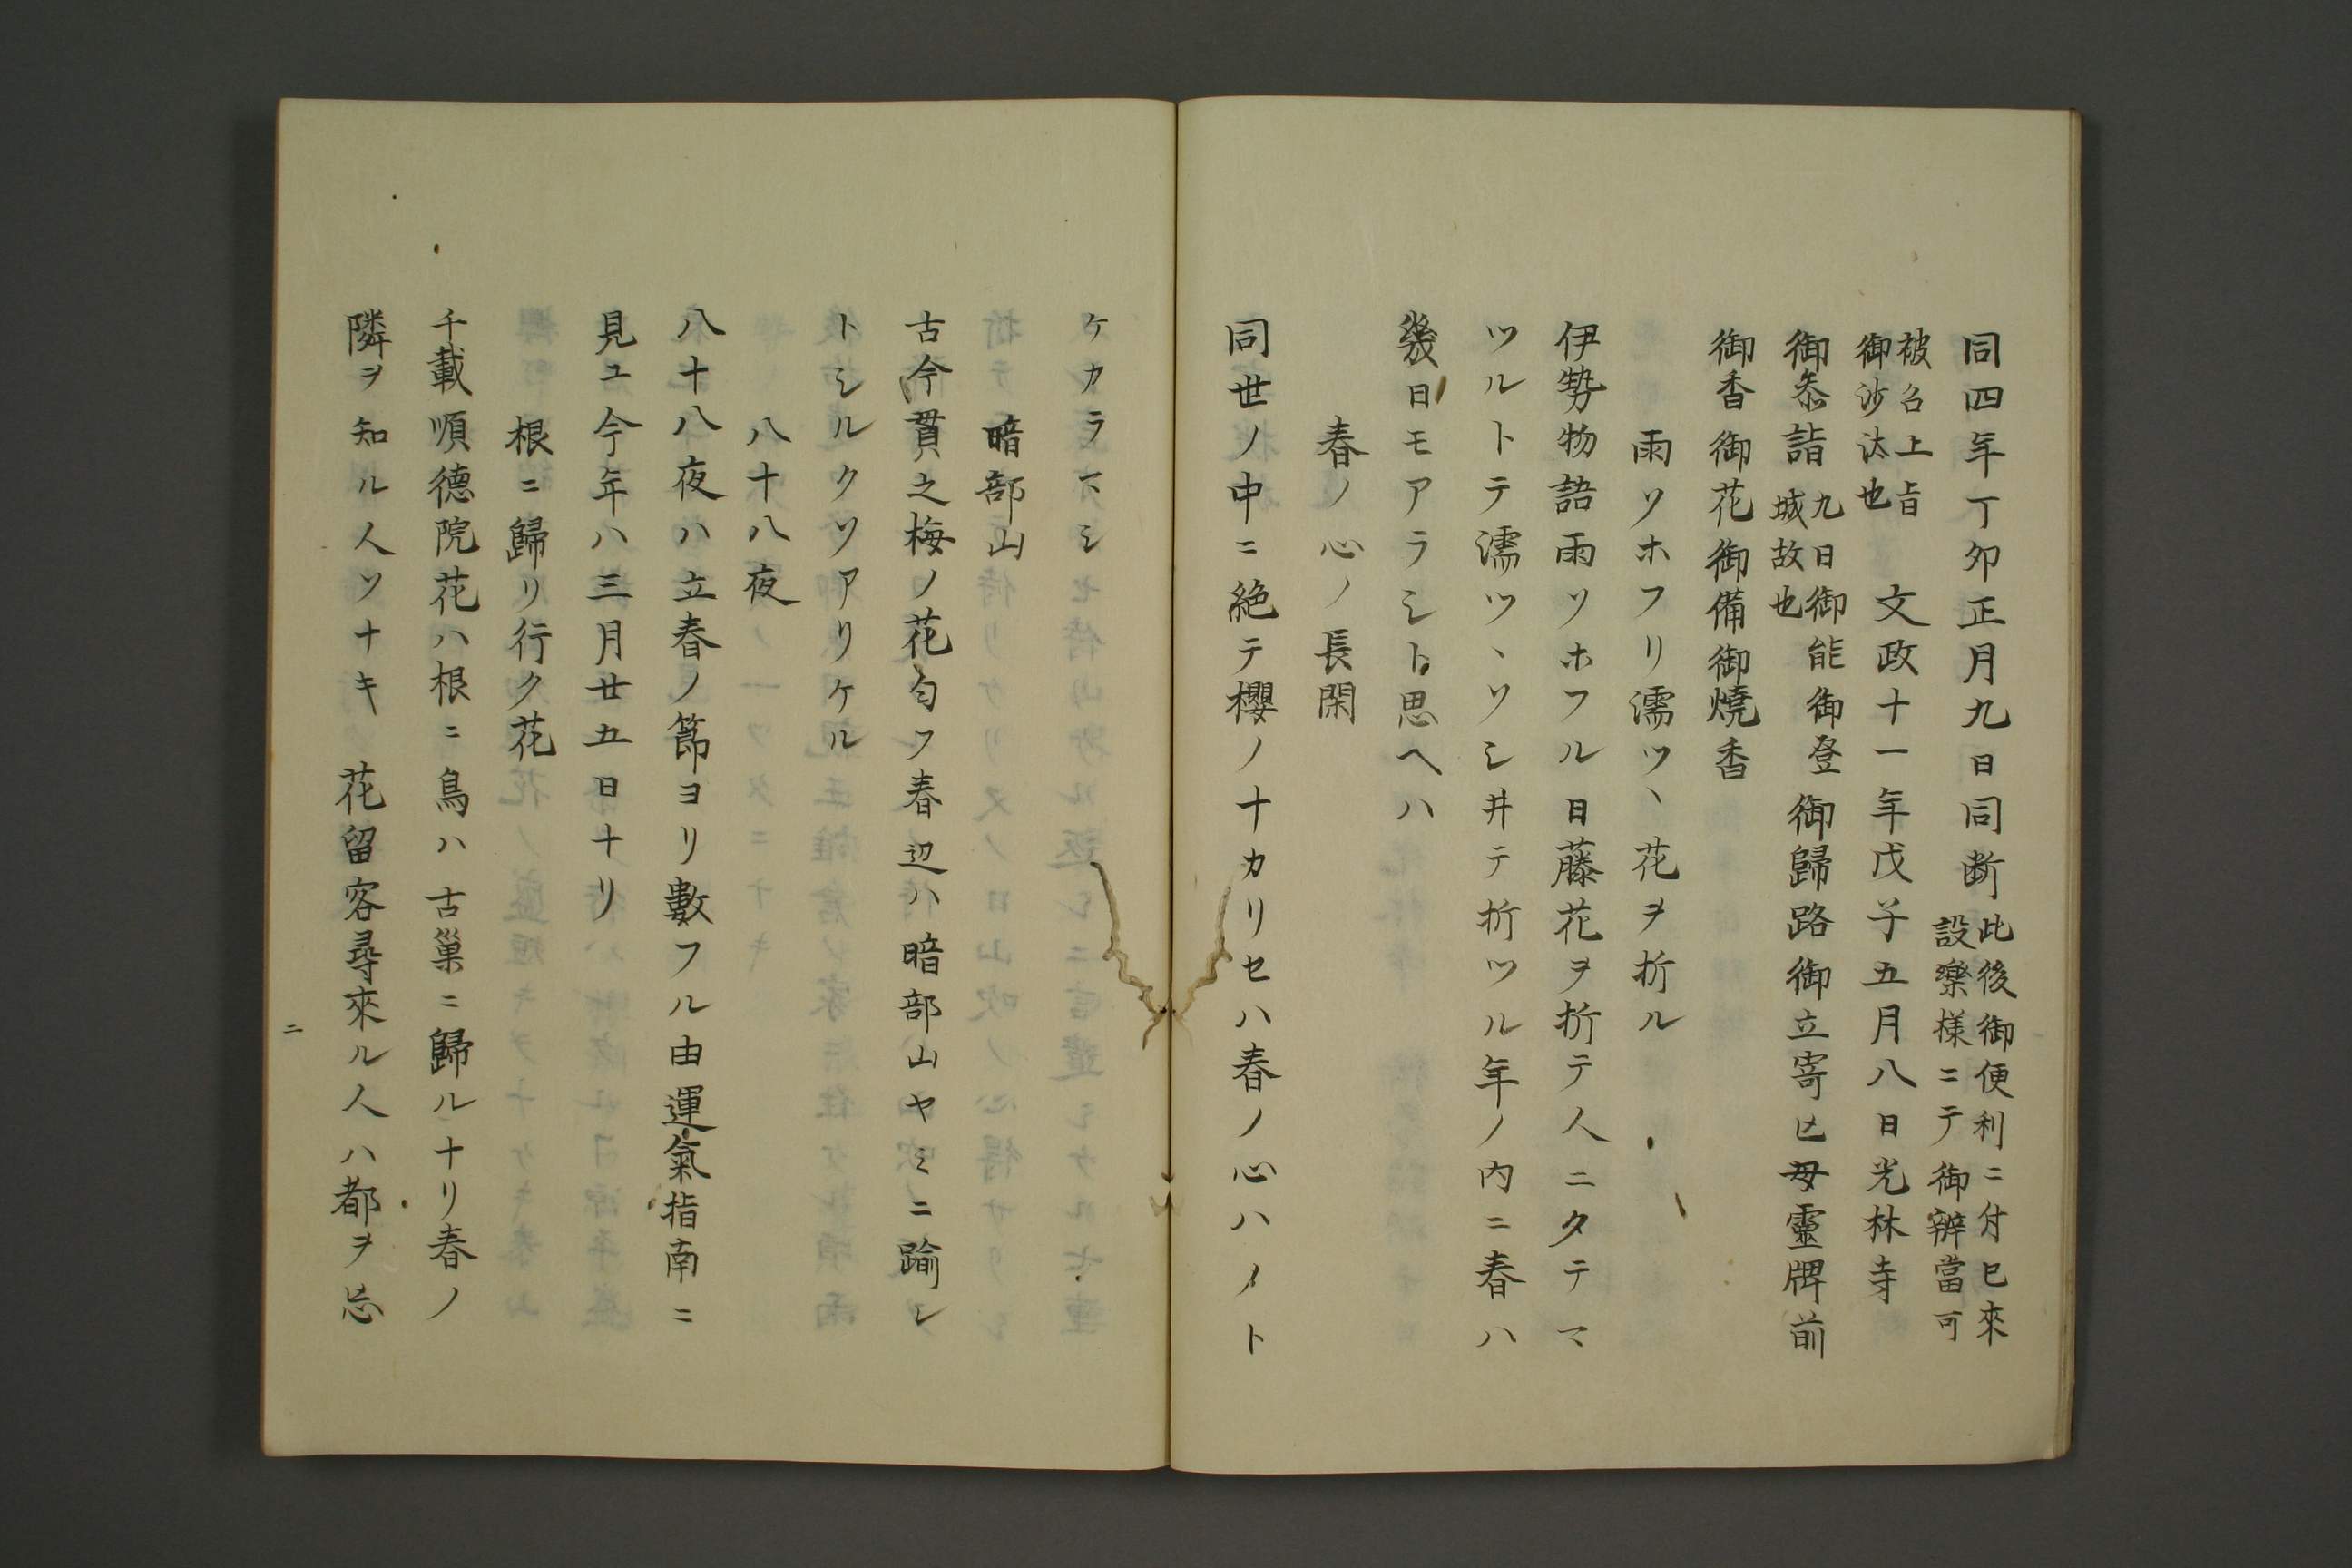 同四年丁卯正月九日同断此後御便利ニ付已來
設樂様ニテ御辨當可
被召上旨
御沙汰也
文政十一年戊子五月八日光林寺
御叅詣九日御能御登
城故也
御歸路御立寄亡母靈牌前
御香御花御備御燒香
雨ソホフリ濡ツヽ花ヲ折ル
伊勢物語雨ソホフル日藤花ヲ折テ人ニタテマ
ツルトテ濡ツヽソシ井テ折ツル年ノ内ニ春ハ
幾日モアラシト思ヘハ
春ノ心ノ長閑
同世ノ中ニ絶テ櫻ノナカリセハ春ノ心ハノト
ケカラマシ
暗部山
古今貫之梅ノ花匂フ春辺ハ暗部山ヤミニ踰シ
トシルクソアリケル
八十八夜
八十八夜ハ立春ノ節ヨリ數フル由運氣指南ニ
見ユ今年ハ三月廿五日ナリ
根ニ歸リ行ク花
千載順德院花ハ根ニ鳥ハ古巣ニ歸ルナリ春ノ
隣ヲ知ル人ソナキ 花留客尋來ル人ハ都ヲ忘
二